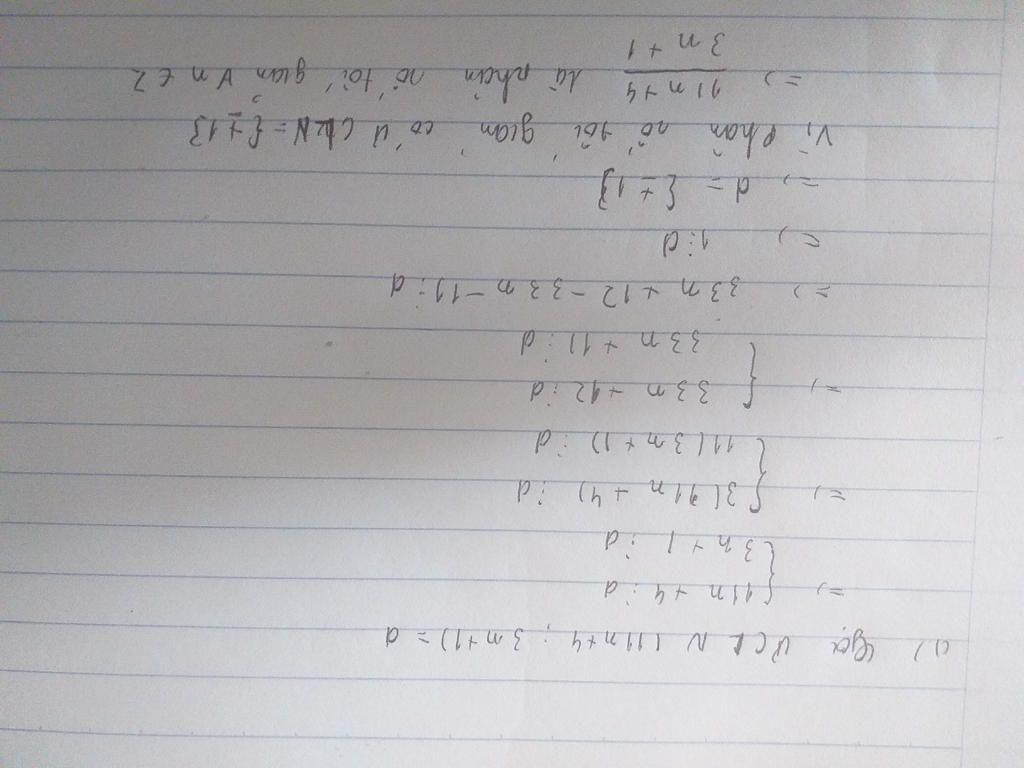 a) Gọi ƯCLN (11n+4 ; 3n+1) = d
=> { 11n + 4 ⋮ d
3n + 1 ⋮ d
=> { 3(11n + 4) ⋮ d
11(3n + 1) ⋮ d
=> { 33n + 12 ⋮ d
33n + 11 ⋮ d
=> 33n + 12 - 33n - 11 ⋮ d
=> 1 ⋮ d
=> d = {±1}
Vì phân số tối giản có ƯCLN = {±1}
=> \frac{11n+4}{3n+1} là phân số tối giản ∀ n ∈ Z